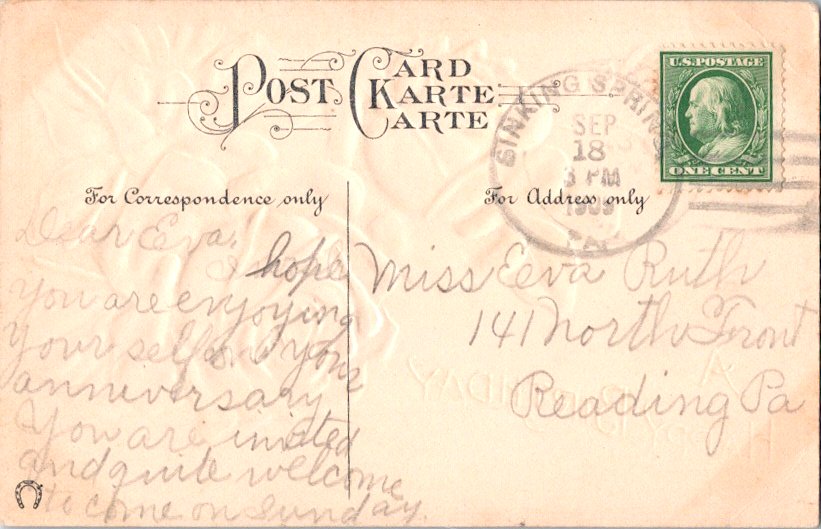 POST CARD
KARTE
CARTE
U.S. POSTAGE
ONE CENT
SINKING SPRING
SEP
18
3 PM
1909
PA.
For Correspondence only
For Address only
Dear Eva!
I hope
you are enjoying
your self on your
anniversary
You are invited
and quite welcome
to come on Sunday.
Miss Eeva Ruth
141 North Front
Reading Pa
A
HAPPY BIRTHDAY